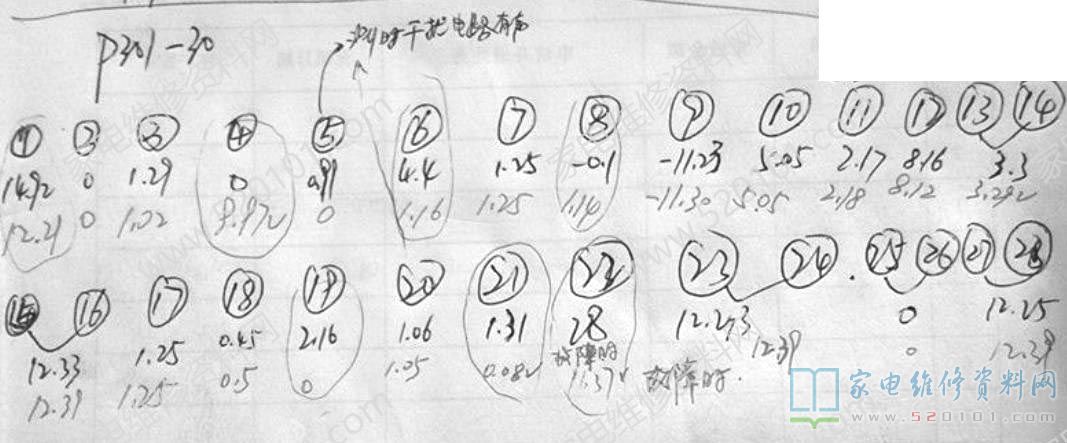 P301-30
测时干扰电路有声
① ② ③ ④ ⑤ ⑥ ⑦ ⑧ ⑨ ⑩ ⑪ ⑫ ⑬ ⑭
14.92 0 1.29 0 0.91 4.4 1.25 -0.1 -11.23 5.05 2.17 8.16 3.3
12.21 0 1.22 9.97V 0 1.16 1.25 1.14 -11.30 5.05 2.18 8.12 3.29V
⑮ ⑯ ⑰ ⑱ ⑲ ⑳ ㉑ ㉒ ㉓ ㉔ ㉕ ㉖ ㉗ ㉘
12.33 1.25 0.45 2.16 1.06 1.31 28 12.273 0 12.25
12.39 1.25 0.5 0 1.05 0.08V 故障时 11.37V 故障时. 12.39 0 12.39
家电维修资料网
www.520101.com